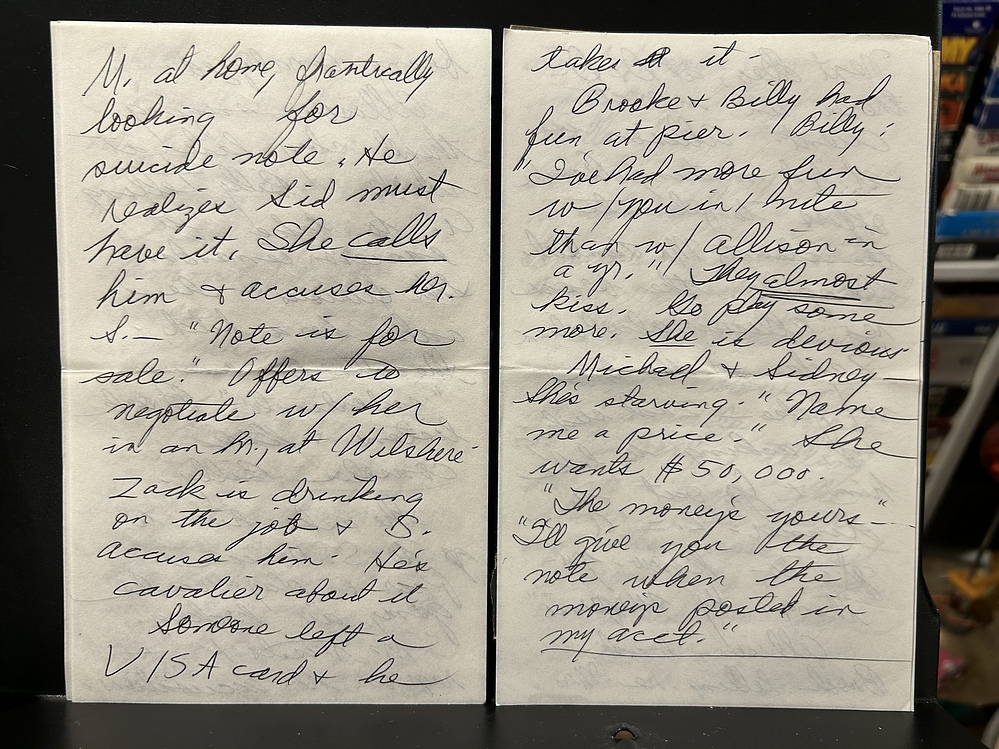 M. at home, frantically
looking for
suicide note. He
realizes Sid must
have it. She calls
him & accuses her.
S.— "Note is for
sale." Offers to
negotiate w/ her
in an hr., at Wilshire
Zack is drinking
on the job & S.
accuses him. He's
cavalier about it
Someone left a
VISA card & he
takes it -
Brooke & Billy had
fun at pier. Billy:
"I've had more fun
w/ you in 1 nite
than w/ Allison in
a yr." They almost
kiss. Go play some
more. She is devious
Michael & Sidney—
She's starving. "Name
me a price." She
wants $50,000.
"The money's yours—"
"I'll give you the
note when the
money's posted in
my acct."